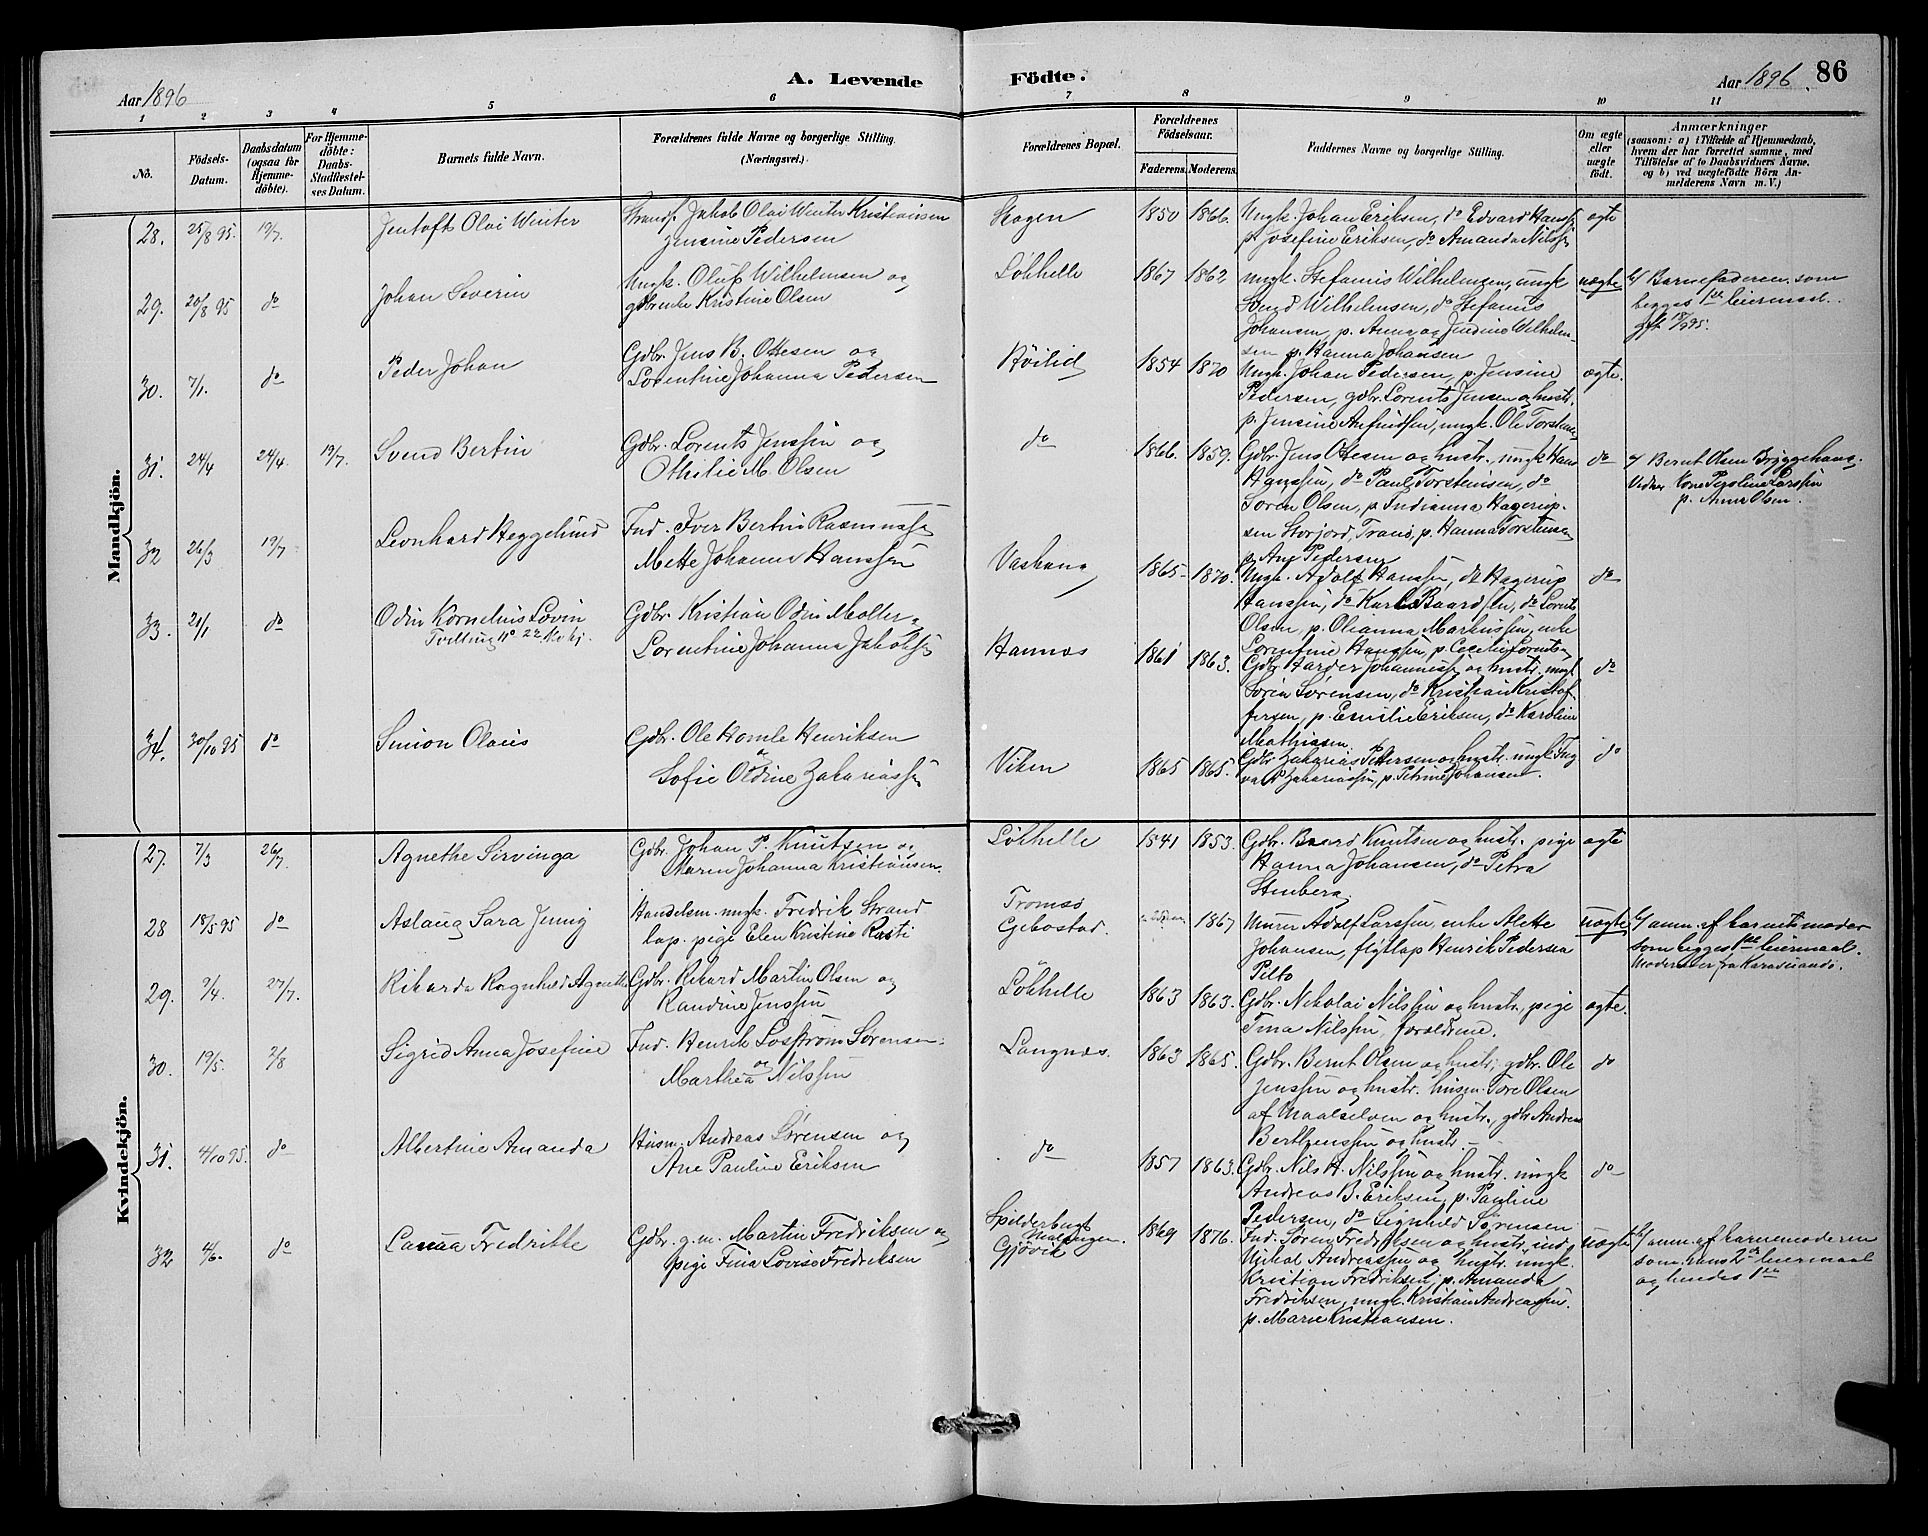 Aar 1896
A. Levende Födte.
Aar 1896. 86
1 2 3 4 5 6 7 8 9 10 11
No.
Födsels-Datum.
Daabsdatum (ogsaa för Hjemme-döbte).
For Hjemme-döbte: Daabs-Stadfæstel-ses Datum.
Barnets fulde Navn.
Forældrenes fulde Navne og borgerlige Stilling. (Næringsvei.)
Forældrenes Bopæl.
Forældrenes Födselsaar.
Faderens. Moderens.
Faddernes Navne og borgerlige Stilling.
Om ægte eller uægte födt.
Anmærkninger
(saasom: a) i Tilfælde af Hjemmedaab, hvem der har forrettet samme, med Tilföielse af to Daabsvidners Navne, og b) ved uægtefödte Börn An-melderens Navn m. V.)
Mandkjön.
28. 25/8 95. 19/7. Jentoft Olai Winter
Strands. Jakob Olai Winter Kristiansen
Jensine Pedersen
Skogen 1850 1866.
Ungk. Johan Eriksen, do Edvard Hanss.
p. Josefine Eriksen, do Amanda Nilssen
ægte
29. 20/8 95 do Johan Severin
Ungk. Oluf Wilhelmsen og
gdbrenke Kristine Olsen
Løkhelle 1867 1862
Ungk. Stefanus Wilhelmsen, ungk
Svend Wilhelmsen, do Stefanus
Johansen, p. Anna og Jendine Wilhelm-
sen p. Hanna Johansen
uægte
b/ Barnefaderen som
begges 1ste leiermaal.
gift 18/9 95.
30. 7/1. do Peder Johan
Gdbr. Jens B. Ottesen og
Lorentine Johanna Pedersen
Röilid 1854 1870
Ungk. Johan Pedersen, p. Jensine
Pedersen, gdbr. Lorents Jensen og hustr.
p. Jensine Arfindsen, ungk. Ole Torstens
ægte.
31. 24/4 24/4. 19/7. Svend Bertin
Gdbr. Lorents Jenssen og
Othilie M. Olsen
do 1866. 1859.
Gdbr. Jens Ottesen og hustr., ungk Hans
Hanssen, do Paul Torstensen, do
Soren Olsen, p. Indianna Hagerup-
sen Storjord, Tranö, p. Hanna Torstensen
p. Ane Pedersen
do
a/ Bernt Olsen Bryggehaug.
Vidner Kone Pegoline Larssen
p. Anna Olsen.
32 26/3 19/7 Leonhard Heggelund
Ind. Iver Bertin Rasmuss.
Mette Johanna Hanssen
Vashaug 1865 1870.
Ungk. Adolf Hanssen, do Hagerup
Hanssen, do Karl Baardsen, do Lorents
Olsen, p. Olianna Markussen, enke
Lorentine Hanssen, p. Cecelie Lorents
do
33. 21/1 do Odin Kornelius Lovin
Tvilling no 22 Kvkj.
Gdbr. Kristian Odin Moller
Lorentine Johanna Jakobss
Hannæs 1861 1863.
Gdbr. Harder Johanness. og hustr. ungk
Soren Sorensen, do Kristian Kristof-
fersen, p. Emilie Eriksen, do Karoline
Mathiasen.
do
34. 30/10 95 do Simon Olaus
Gdbr. Ole Homle Henriksen
og
Sofie Oldine Zakariass
Viken 1865 1865.
Gdbr. Zakarias Pettersen og hustr. ungk Ing
vald Zakariassen, p. Petrine Johansen.
do
Kvindekjön.
27. 7/3 26/7 Agnethe Servinga
Gdbr. Johan P. Knutsen og
Maren Johanna Kristiansen.
Løkhelle 1841 1853.
Gdbr. Baard Knutsen og hustr. pige
Hanna Johansen, do Petra
Stenberg
ægte
28 18/5 95 do Aslaug Sara Jenny
Handelsm. ungk. Fredrik Strand
lap. pige Elen Kristine Rasti
Tromsö
Gibostad. 1867
Murer Adolf Larssen, enke Alette
Johansen, flytlap Henrik Pedersen
Pilto
uægte
b/ anm. af barnets moder
som begges 1ste leiermaal.
Moder er fra Karasuando.
29. 9/4. 27/7. Rikarda Ragnhild Agnethe
Gdbr. Rikard Martin Olsen og
Randine Jenssen
Løkhelle 1863 1863.
Gdbr. Nikolai Nilssen og hustr., pige
Tina Nilssen, forældrene.
ægte.
30. 19/5. 2/8 Sigrid Anna Josefine
Ind. Henrik Losstrom Sörensen
og
Marthea Nilssen
Langnæs. 1863 1865.
Gdbr. Bernt Olsen og hustr, gdbr. Ole
Jenssen og hustr. husm. Tore Olsen
af Maalselven og hustr., gdb Andreas
Berthenssen og hustr.
do
31. 4/10 95. do Albertine Amanda
Husm. Andreas Sørensen og
Ane Pauline Eriksen
do 1857 1863.
Gdbr. Nils A. Nilssen og hustr. ungk
Andreas B. Eriksen, p. Pauline
Pedersen, do Signhild Sörensen
do
32 4/6. do Lanna Fredrikke
Gdbr. g.m. Martin Fredriksen og
pige Tina Lovise Fredriksen
Spilderbugt
Malangen.
Gjøvik 1869 1876.
Ind. Sören Fredriksen og hustr, ind.
Mikal Andreassen og hustr. ungk.
Kristian Fredriksen, p. Amanda
Fredriksen, ungk. Kristian Andreassen.
p. Marie Kristiansen.
uægte
b/ anm. af barnemoderen
som hans 2det leiermaal
og hendes 1ste